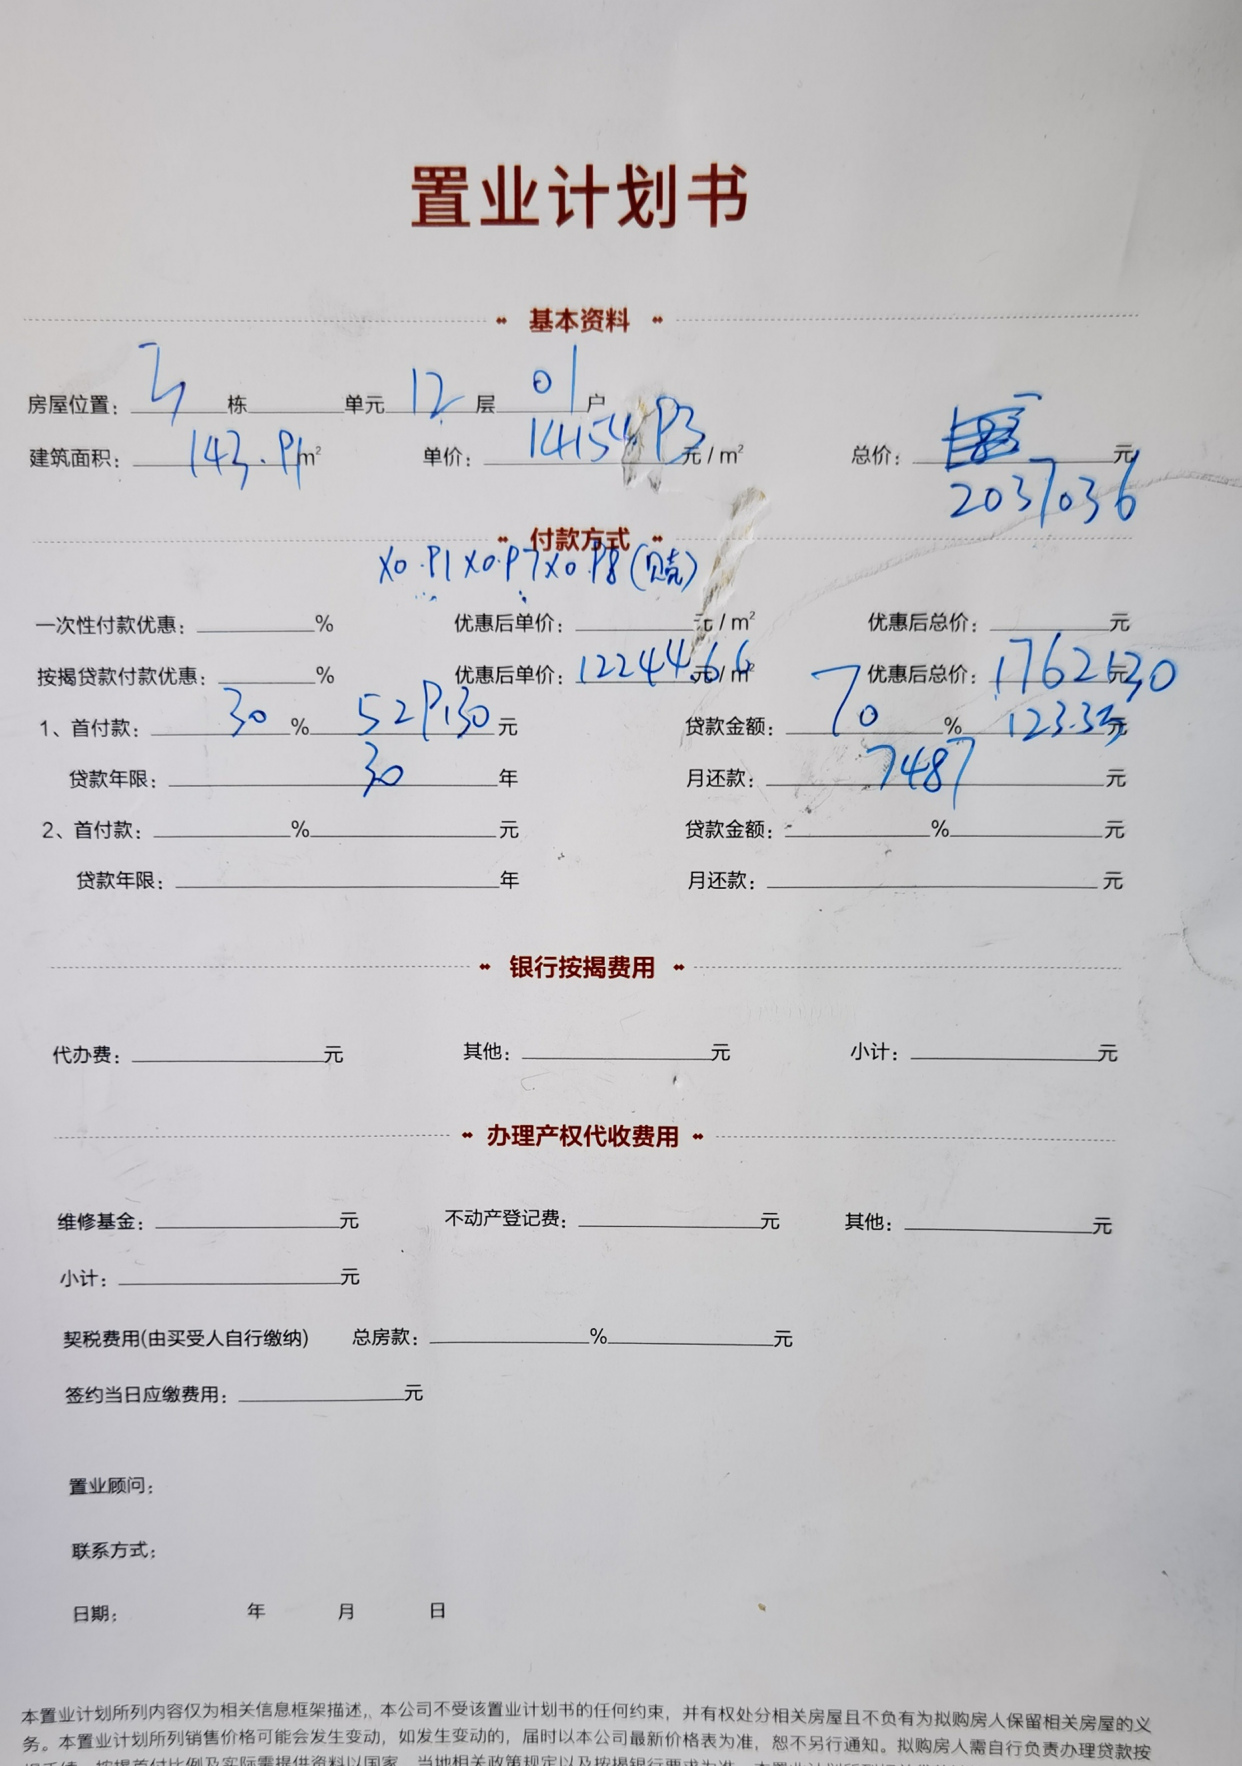 置业计划书
基本资料
房屋位置：3栋 单元12层01户
建筑面积：143.91m² 单价：14154.93元/m² 总价： 元
2037036
付款方式
×0.91×0.97×0.98(贝壳)
一次性付款优惠： % 优惠后单价： 元/m² 优惠后总价： 元
按揭贷款付款优惠： % 优惠后单价：12244.66元/m² 优惠后总价：1762130元
1、首付款：30% 529130元 贷款金额：70% 123.3元
贷款年限：30年 月还款：7487元
2、首付款： % 元 贷款金额： % 元
贷款年限： 年 月还款： 元
银行按揭费用
代办费： 元 其他： 元 小计： 元
办理产权代收费用
维修基金： 元 不动产登记费： 元 其他： 元
小计： 元
契税费用(由买受人自行缴纳) 总房款： % 元
签约当日应缴费用： 元
置业顾问：
联系方式：
日期： 年 月 日
本置业计划所列内容仅为相关信息框架描述，本公司不受该置业计划书的任何约束，并有权处分相关房屋且不负有为拟购房人保留相关房屋的义
务。本置业计划所列销售价格可能会发生变动，如发生变动的，届时以本公司最新价格表为准，恕不另行通知。拟购房人需自行负责办理贷款按
揭手续，按揭首付比例及实际需提供资料以国家、当地相关政策规定以及按揭银行要求为准。